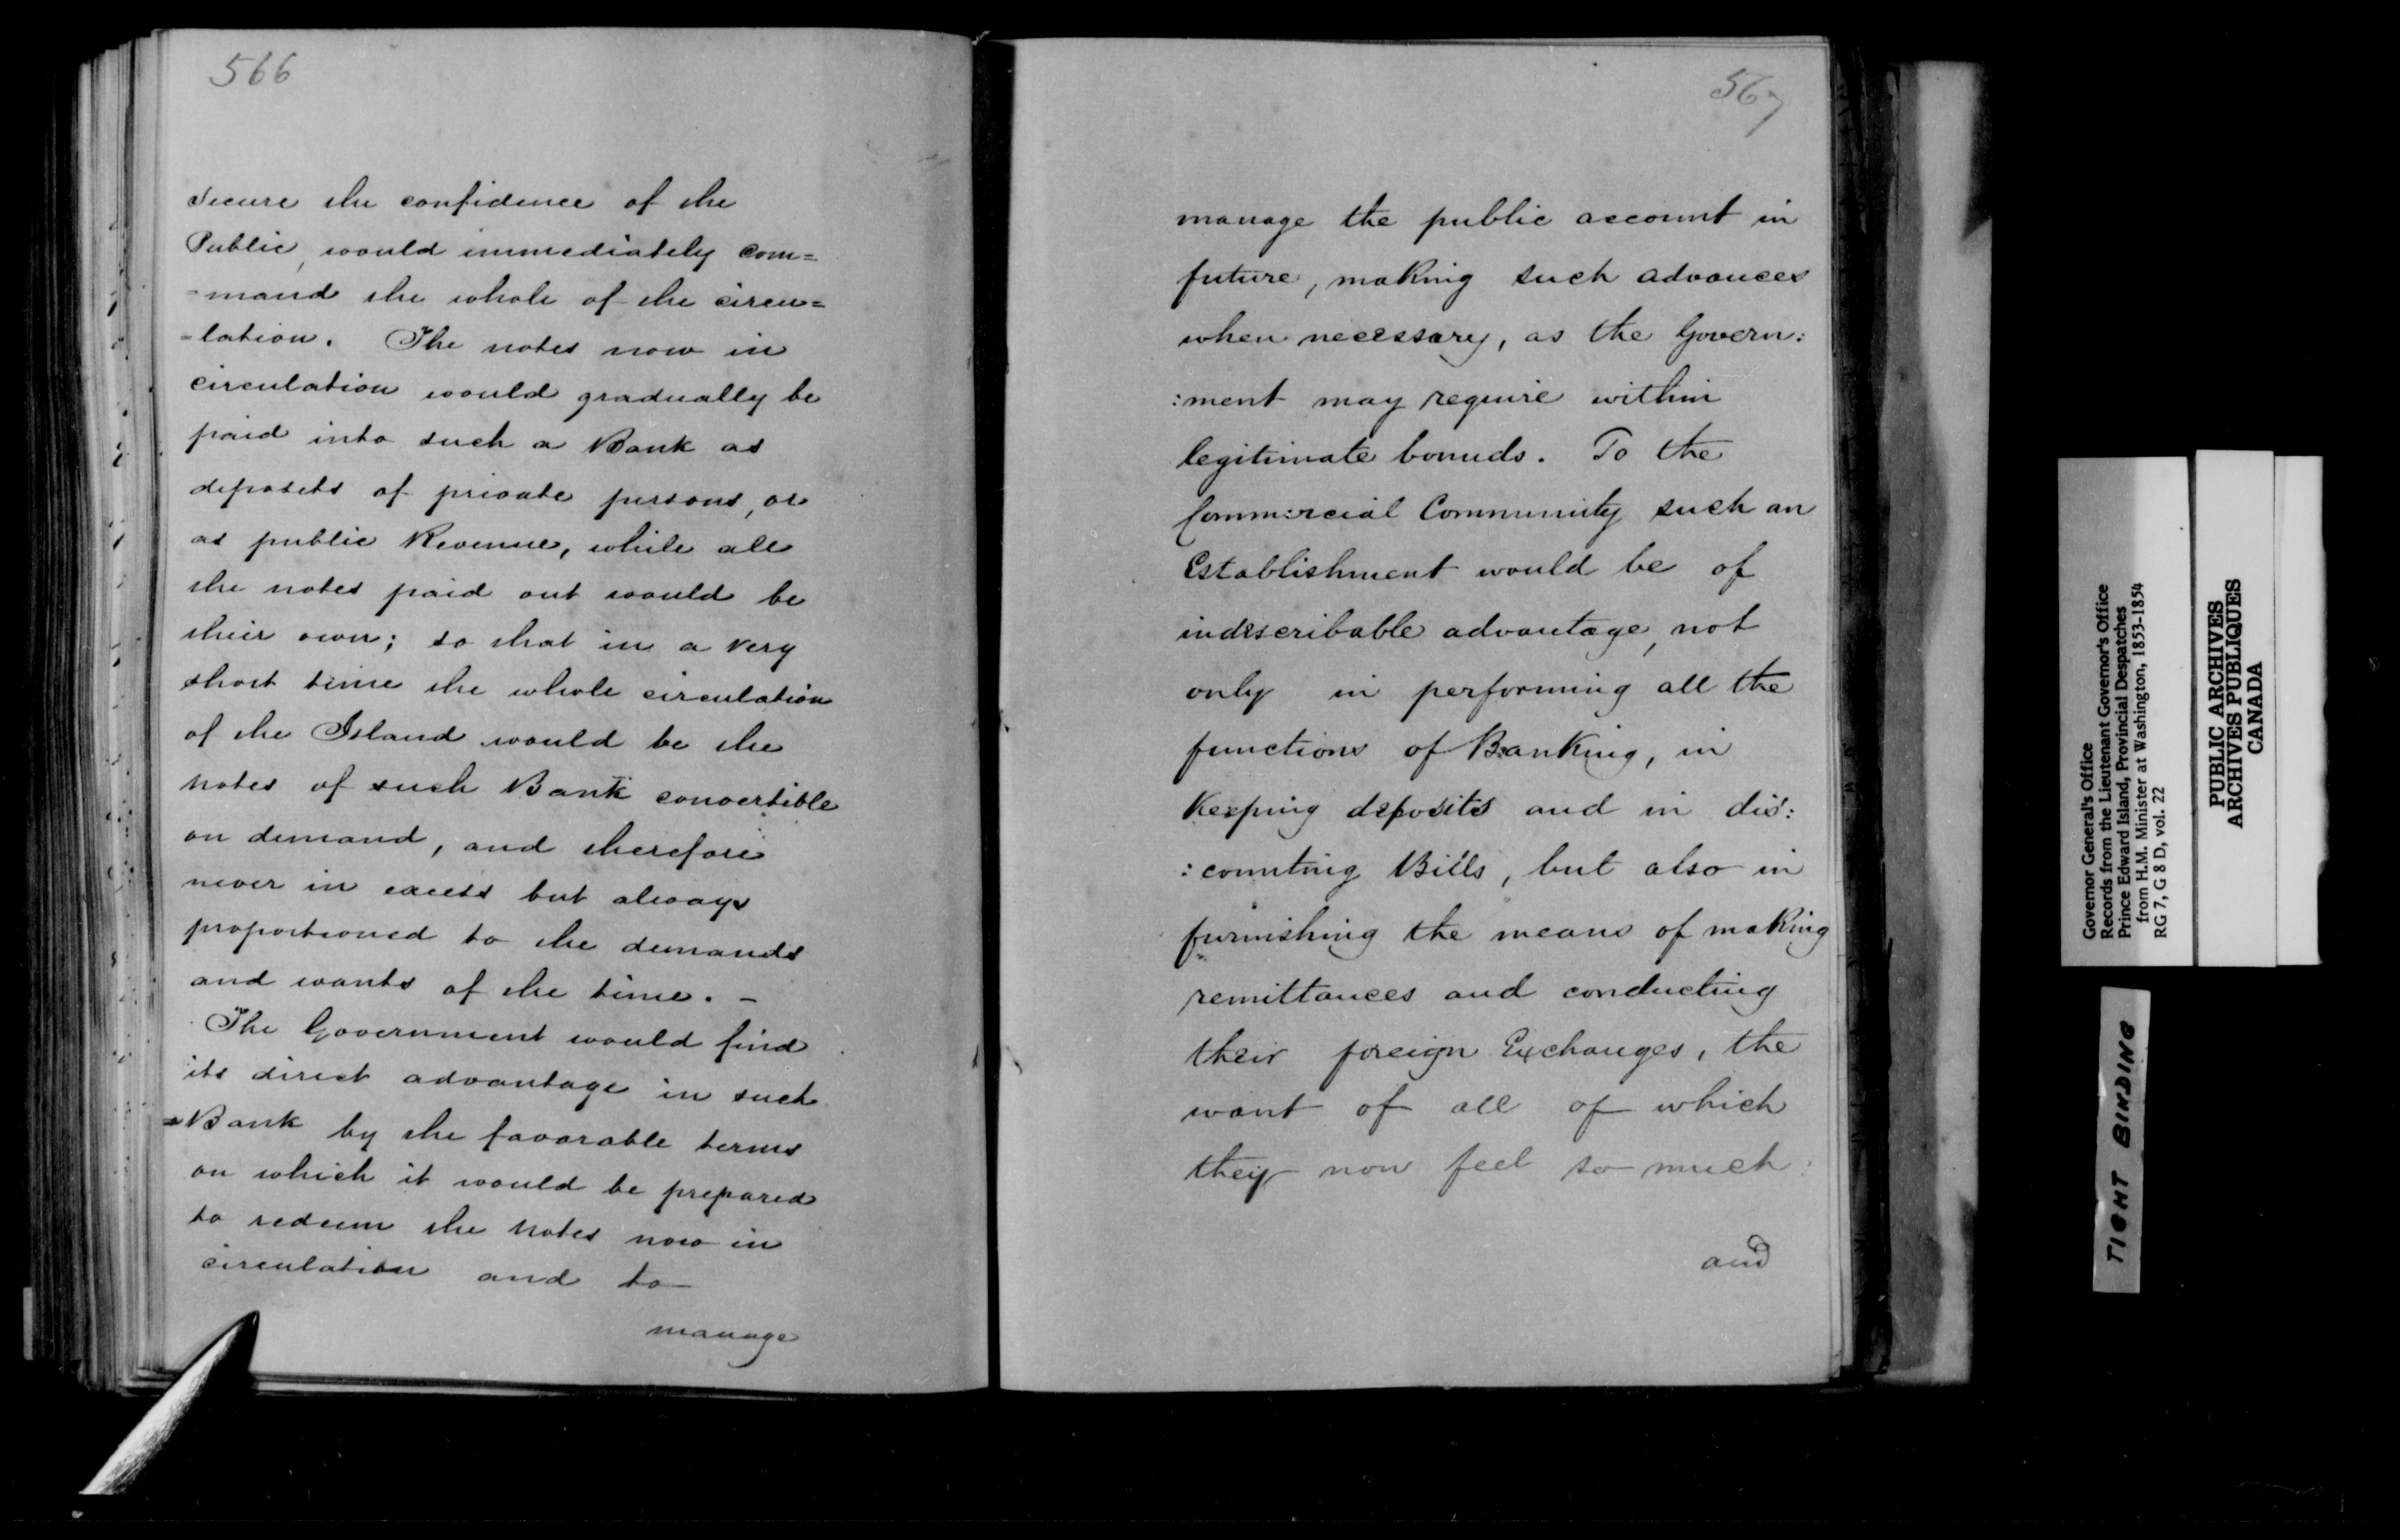 566
secure the confidence of the
Public, would immediately com=
=mand the whole of the circu=
=lation. The notes now in
circulation would gradually be
paid into such a Bank as
deposits of private persons, or
as public Revenue, while all
the notes paid out would be
their own; so that in a very
short time the whole circulation
of the Island would be the
notes of such Bank convertible
on demand, and therefore
never in excess but always
proportioned to the demands
and wants of the time. -
The Government would find
its direct advantage in such
Bank by the favorable terms
on which it would be prepared
to redeem the notes now in
circulation and to
manage
567
manage the public account in
future, making such advances
when necessary, as the Govern:
:ment may require within
legitimate bounds. To the
Commercial Community such an
Establishment would be of
indescribable advantage, not
only in performing all the
functions of Banking, in
Keeping deposits and in dis:
:counting Bills, but also in
furnishing the means of making
remittances and conducting
their foreign Exchanges, the
want of all of which
they now feel so much:
and
Governor General's Office
Records from the Lieutenant Governor's Office
Prince Edward Island, Provincial Despatches
from H.M. Minister at Washington, 1853-1854
RG 7, G 8 D, vol. 22
PUBLIC ARCHIVES
ARCHIVES PUBLIQUES
CANADA
TIGHT BINDING